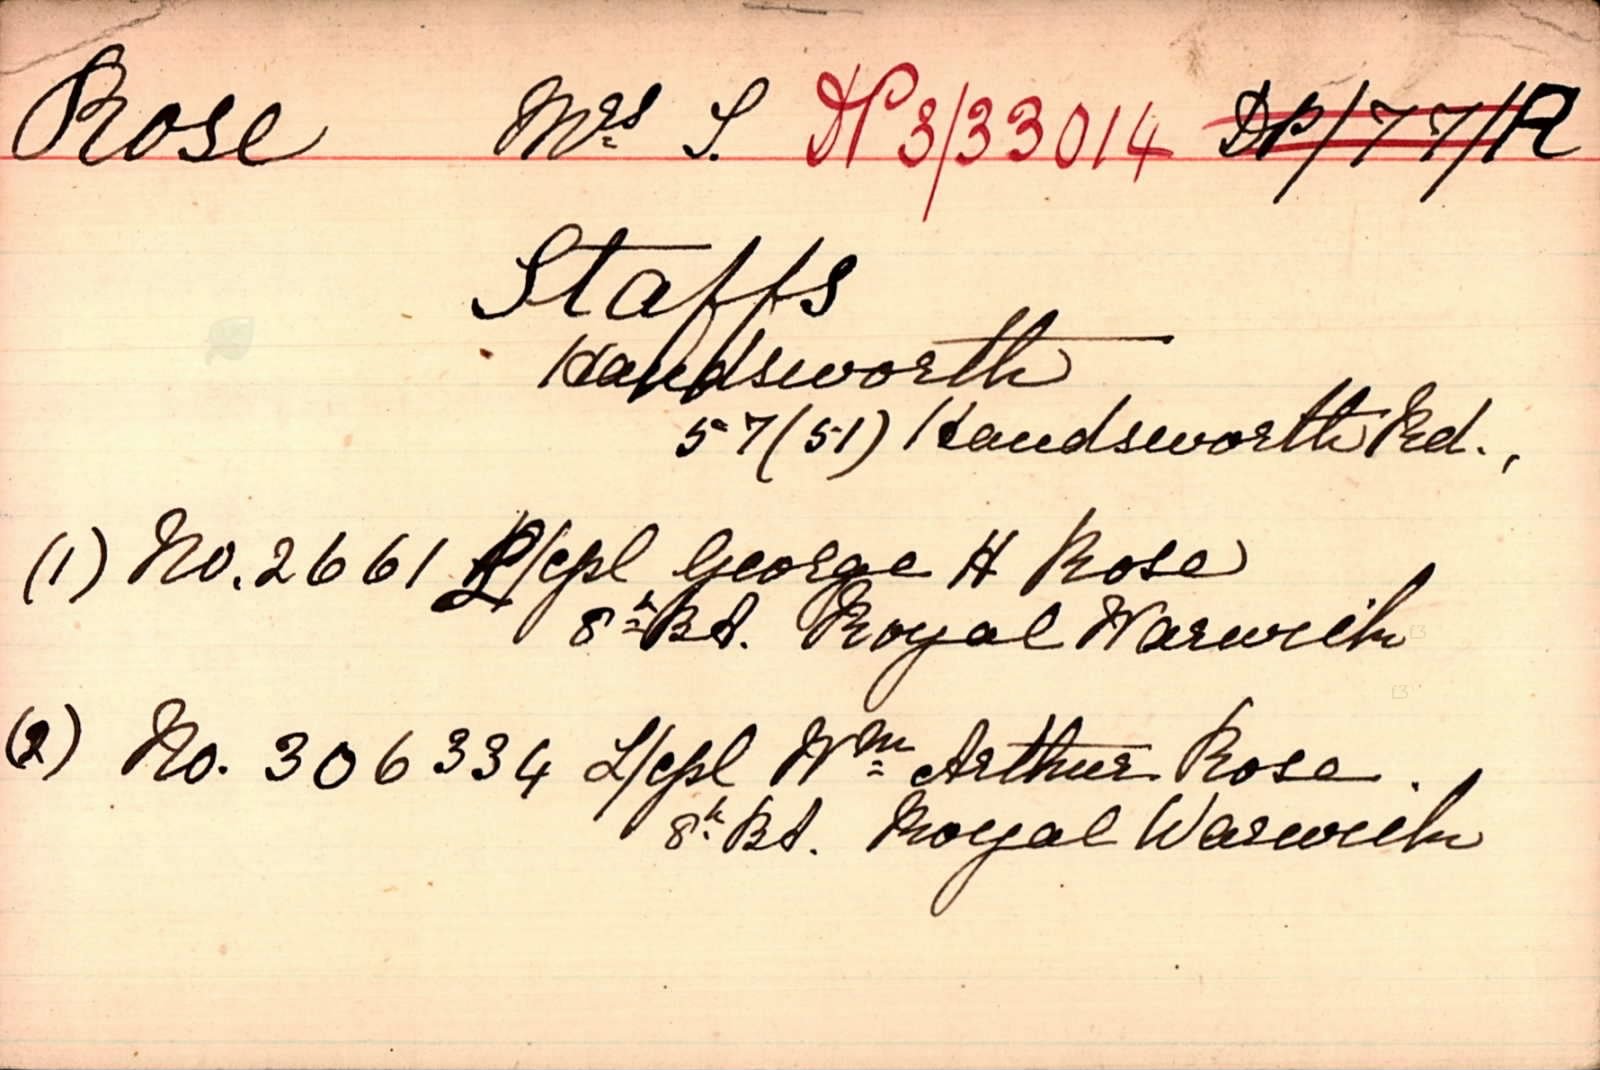 Rose Mrs S. DP3/33014 DP/77/R
Staffs
Handsworth
57(51) Handsworth Rd.,
(1) No. 2661 L/cpl George H Rose
8th Bt. Royal Warwick
(2) No. 306334 L/cpl Wm Arthur Rose.
8th Bt. Royal Warwick